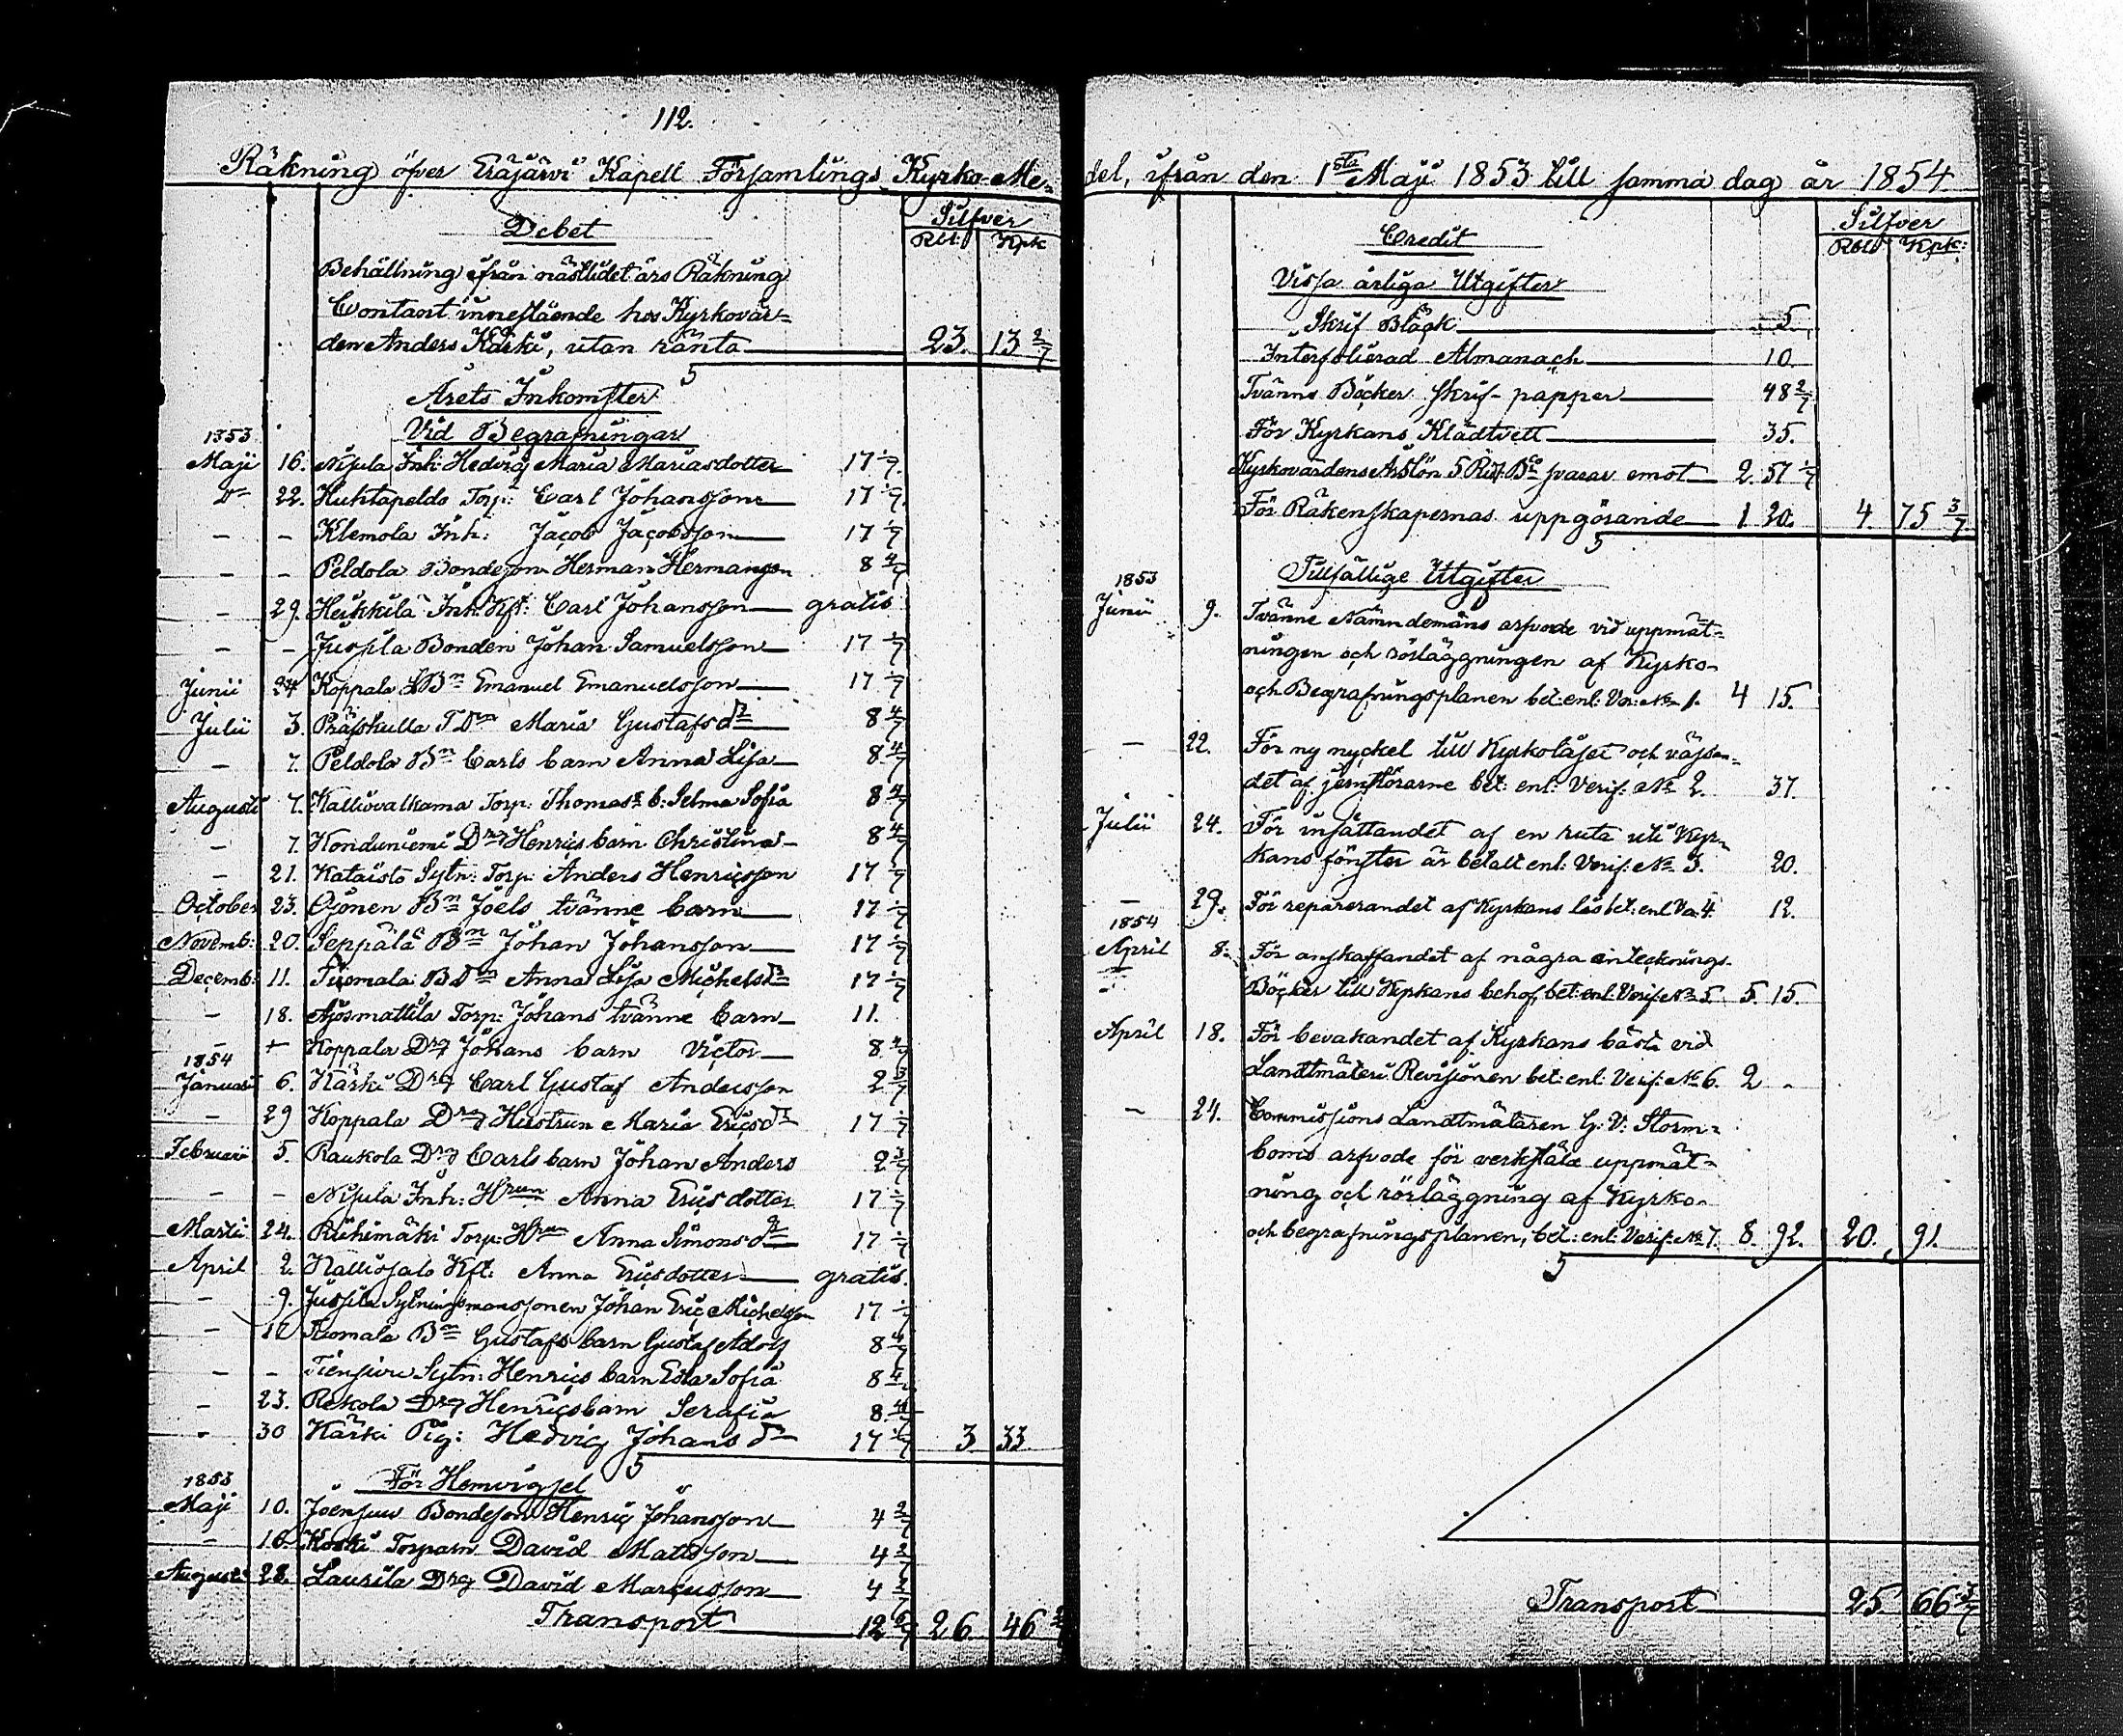 112.
Räkning öfver Eräjärvi Kapell Församlings Kyrko-Me-
Debet
Silfver
Rbl Kpk
Behållning ifrån nästlidet års Räkning
Contant innestående hos Kyrkovär-
den Anders Kärki, utan ränta 23. 13 2/7
Årets Inkomster
Vid Begrafningar
1853
Maji 16. Nijula Inh: Hedvig Maria Mariasdotter 17 1/7
Do 22. Huhtapeldo Torp: Carl Johansson 17 1/7
- - Klemola Inh: Jacob Jacobsson 17 1/7
- - Peldola Bondeson Herman Hermansson 8 4/7
- 29. Heikkilä Inh: Kft: Carl Johansson gratis
- - Jussila Bonden Johan Samuelsson 17 1/7
Junii 24 Koppala Bn Emanuel Emanuelsson 17 1/7
Julii 3. Präskulla Maria Gustafsdr 8 4/7
- 7. Peldola Bn Carls barn Anna Lisa 8 4/7
Augusti 7. Kalliovalkama Torp: Thomas b: Selma Sofia 8 4/7
- 7. Konduniemi Drg Henrics barn Christina 8 4/7
- 21. Kataisto Sytn: Torp: Anders Henricsson 17 1/7
October 23. Ojonen Bn Joels tvänne barn 17 1/7
Novemb: 20. Seppälä Bn Johan Johansson 17 1/7
Decemb: 11. Tuomala Anna Lisa Michelsdr 17 1/7
- 18. Ajosmattila Torp: Johans tvänne barn 11.
- Koppala Drg Johans barn Victor 8 4/7
1854
Januari 6. Kärki Drg Carl Gustaf Andersson 2 3/7
- 29 Koppala Drg Hustrun Maria Ericsdr 17 1/7
Februari 5. Raukola Drg Carls barn Johan Anders 2 3/7
- - Nijula Inh: Hrun Anna Ericsdotter 17 1/7
Martii 24. Riihimäki Torp: Hrun Anna Simonsdr 17 1/7
April 2. Kalliosalo Kft: Anna Ericsdotter gratis.
- 9. Jussila Sytningsmanssonen Johan Eric Michelsson 17 1/7
- 17 Tuomala Bn Gustafs barn Gustaf Adolf 8 4/7
- - Sytn: Henrics barn Eva Sofia 8 4/7
- 23. Rekola Drg Henrics barn Serafia 8 4/7
- 30 Kärki Pig: Hedvig Johansdr 17 1/7 3 33
För Hemvigsel
1853
Maji 10. Joensuu Bondeson Henric Johansson 4 2/7
- 16. Koski Torparn David Mattsson 4 2/7
Augusti 28. Laurila Drg David Marcusson 4 2/7
Transport 12 6/7 26 46 2/7
del, ifrån den 1sta Maji 1853 till samma dag år 1854
Credit
Silfver
Rbl Kpk:
Vissa årliga Utgifter
Skrif Bläck 5
Interfolierad Almanach 10
Tvänne Böcker skrif-papper 48 2/7
För Kyrkans Klädtvett 35.
Kyrkovärdens Årslön 5 Rd Bco svarar emot 2. 57 1/7
För Räkenskapernas uppgörande 1 20. 4. 75 3/7
Tillfällige Utgifter
1853
Junii 9. Tvänne Nämndemäns arfvode vid uppmät-
ningen och rörläggningen af Kyrko-
och Begrafningsplanen bet: enl: Ver: No 1. 4 15.
- 22. För ny nyckel till Kyrkolåset och
det af bet: enl: Verif: No 2. 37.
Julii 24. För insättandet af en ruta uti Kyr-
kans fönster är betalt enl: Verif: No 3. 20.
- 29. För reparerandet af Kyrkans lås bet: enl Ve: 4 12.
1854
April 8. För anskaffandet af några antecknings-
Böcker till Kyrkans behof bet: enl: Verif: No 5 5 15.
April 18. För bevakandet af Kyrkans bästa vid
Landtmäteri Revisionen bet: enl: Verif: No 6. 2 -
- 24. Commissions Landtmätaren G: V: Storm-
boms arfvode för verkstäld uppmät-
ning och rörläggning af Kyrko-
och begrafningsplanen, bet: enl: Verif: No 7. 8. 92. 20. 91.
Transport 25. 66 3/7